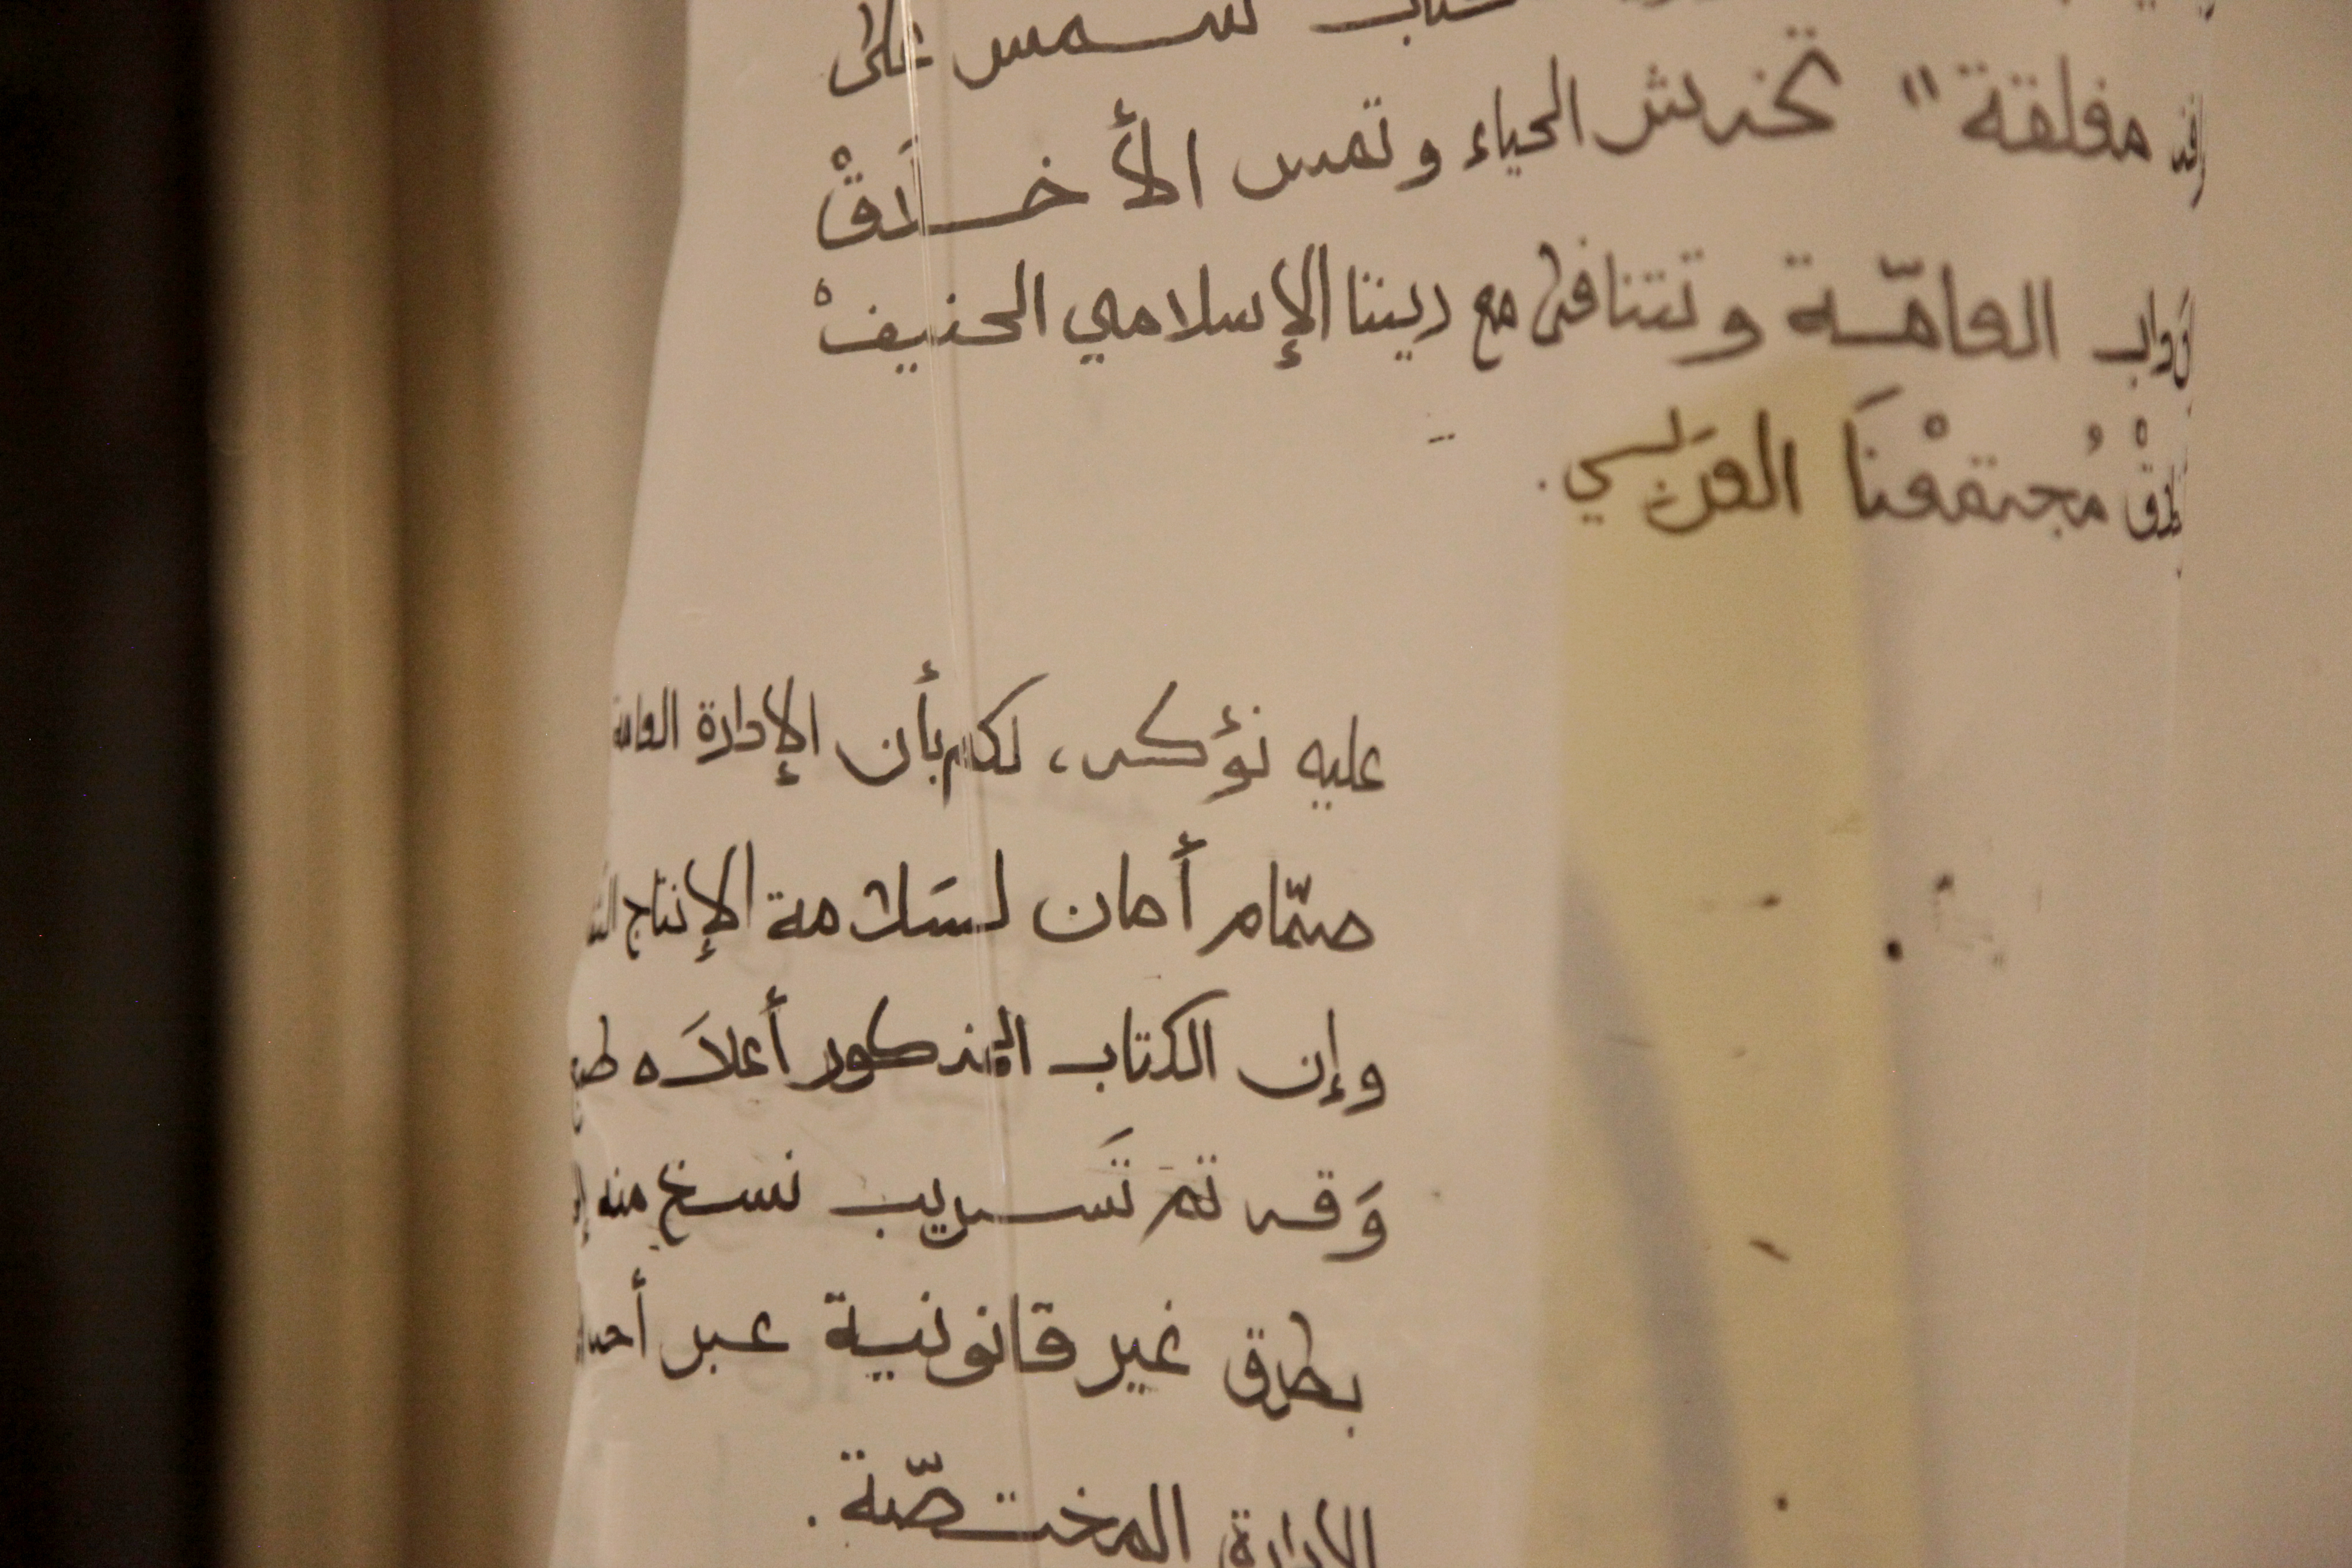 شمس على
مغلقة" تخدش الحياء وتمس الأخلَاقْ
العامّة وتتنافى مع ديننا الإسلامي الحنيفْ
مُجتمعْنَا العرَبي.
عليه نؤكد، لكم بأن الإدارة العامة
صمّام أمان لسَلامة الإنتاج
وإن الكتاب المذكور أعلَاه
وَقد تم تَسريب نسخ منه
بطرق غير قانونية عبر
الإدارة المختصّة.